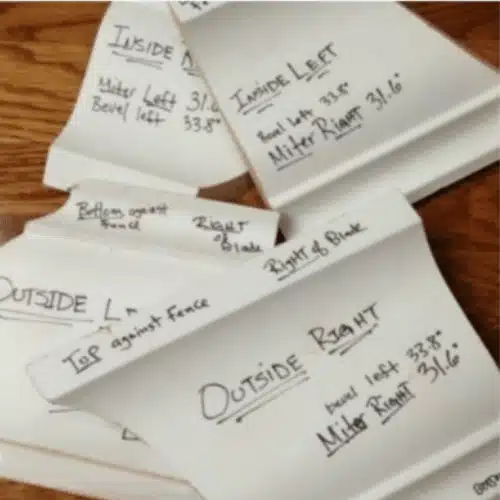 INSIDE
Miter Left 31.6
Bevel left 33.8°
INSIDE LEFT
Bevel left 33.8°
Miter Right 31.6°
Bottom against
Fence
RIGHT
of Blade
OUTSIDE L
Right of Blade
TOP against Fence
OUTSIDE RIGHT
bevel left 33.8°
Miter Right 31.6°